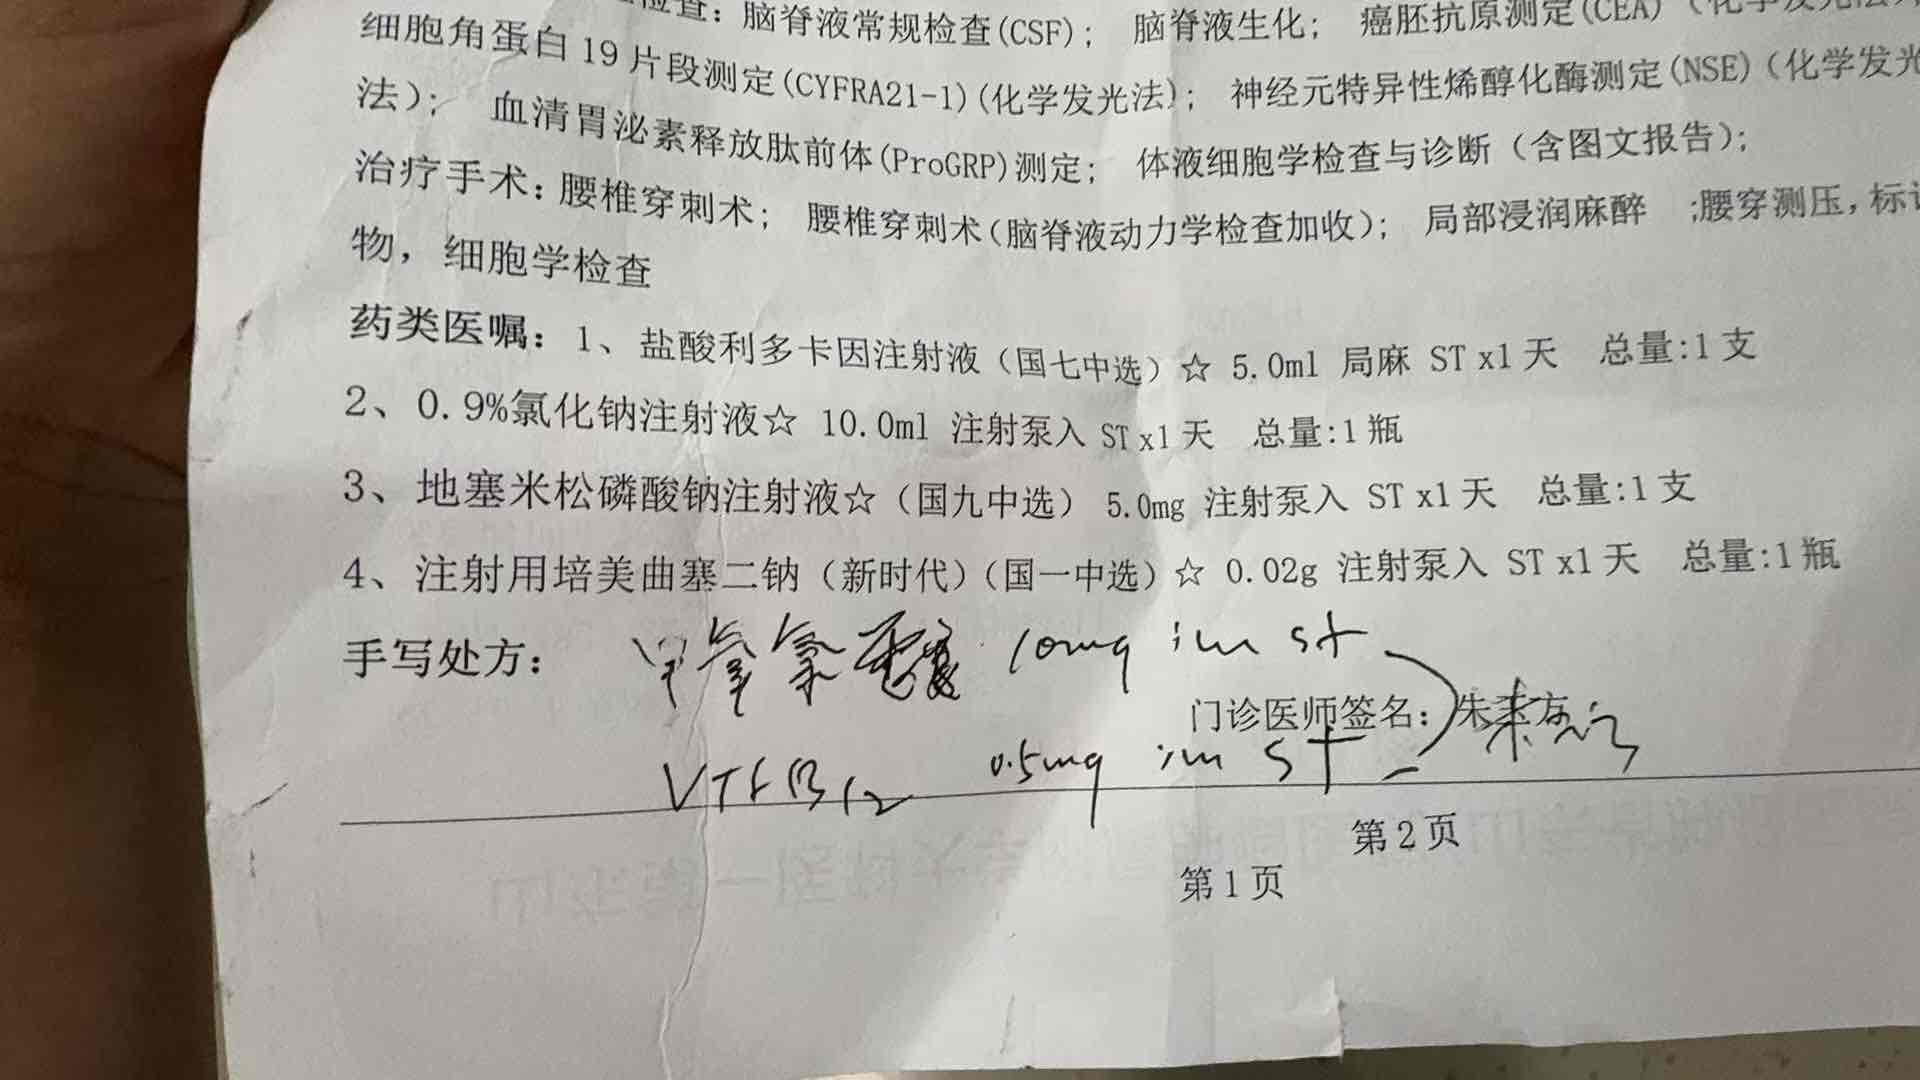 检查: 脑脊液常规检查(CSF); 脑脊液生化; 癌胚抗原测定(CEA) (化学发光法
细胞角蛋白19片段测定(CYFRA21-1)(化学发光法); 神经元特异性烯醇化酶测定(NSE)(化学发光
法); 血清胃泌素释放肽前体(ProGRP)测定; 体液细胞学检查与诊断 (含图文报告);
治疗手术: 腰椎穿刺术; 腰椎穿刺术(脑脊液动力学检查加收); 局部浸润麻醉 ;腰穿测压, 标
物, 细胞学检查
药类医嘱: 1、盐酸利多卡因注射液 (国七中选) ☆ 5.0ml 局麻 ST x1天 总量:1支
2、0.9%氯化钠注射液☆ 10.0ml 注射泵入 ST x1天 总量:1瓶
3、地塞米松磷酸钠注射液☆ (国九中选) 5.0mg 注射泵入 ST x1天 总量:1支
4、注射用培美曲塞二钠 (新时代) (国一中选) ☆ 0.02g 注射泵入 ST x1天 总量:1瓶
手写处方: 甲氧氯 10mg im st
门诊医师签名: 朱
B12 0.5mg im ST
第2页
第1页